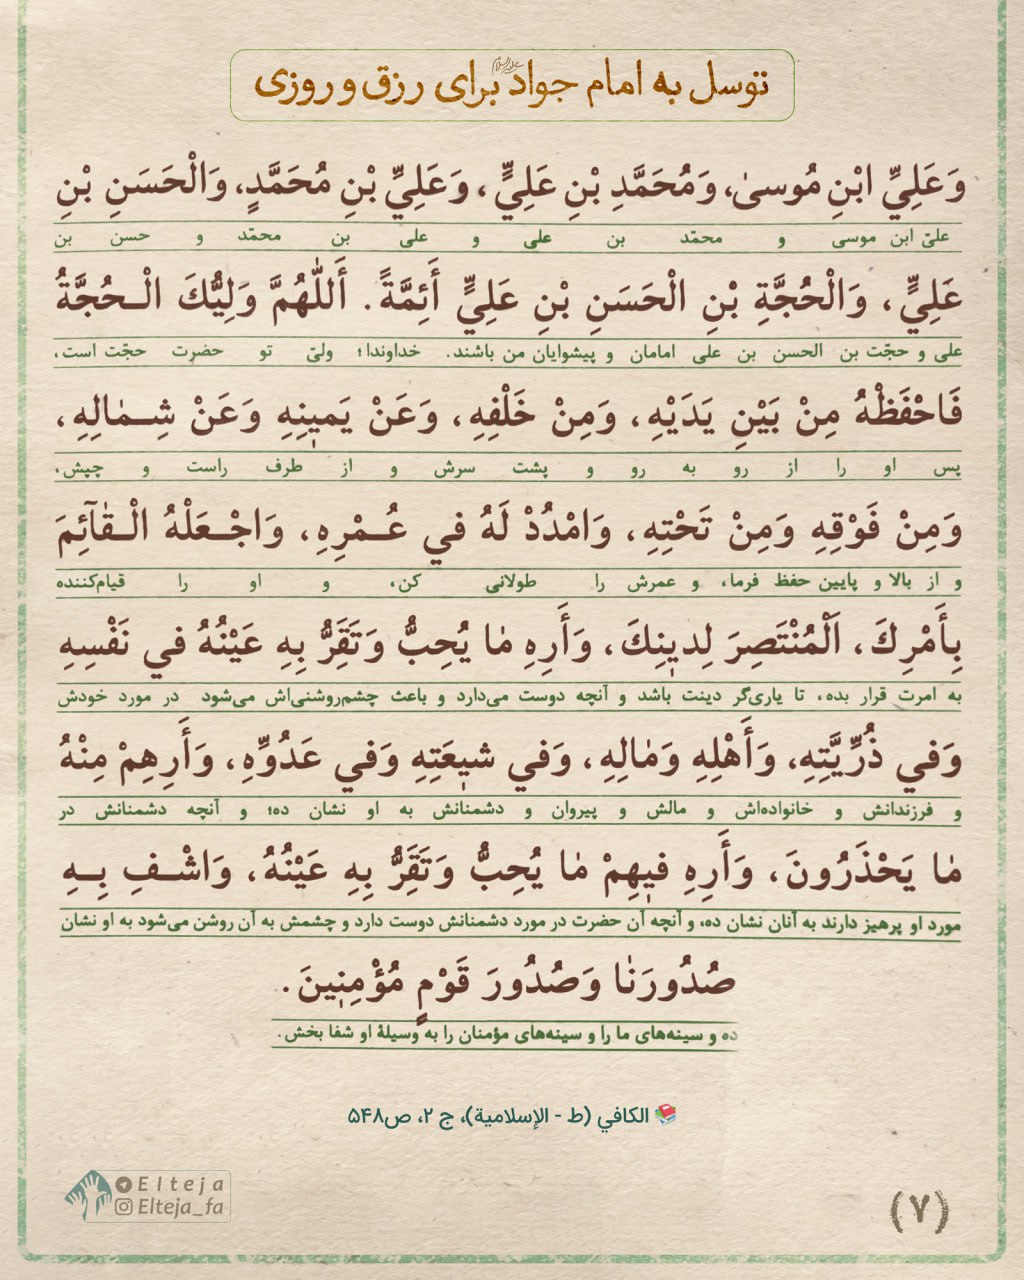 توسل به امام جواد علیه‌السلام برای رزق و روزی
وَعَلِيِّ ابْنِ مُوسىٰ، وَمُحَمَّدِ بْنِ عَلِيٍّ، وَعَلِيِّ بْنِ مُحَمَّدٍ، وَالْحَسَنِ بْنِ
علیّ ابن موسی و محمّد بن علی و علی بن محمّد و حسن بن
عَلِيٍّ، وَالْحُجَّةِ بْنِ الْحَسَنِ بْنِ عَلِيٍّ أَئِمَّةً. أَللّٰهُمَّ وَلِيُّكَ الْـحُجَّةُ
علی و حجّت بن الحسن بن علی امامان و پیشوایان من باشند. خداوندا؛ ولیّ تو حضرت حجّت است،
فَاحْفَظْهُ مِنْ بَيْنِ يَدَيْهِ، وَمِنْ خَلْفِهِ، وَعَنْ يَمينِهِ وَعَنْ شِـمٰالِهِ،
پس او را از رو به رو و پشت سرش و از طرف راست و چپش،
وَمِنْ فَوْقِهِ وَمِنْ تَحْتِهِ، وَامْدُدْ لَهُ في عُـمْرِهِ، وَاجْـعَلْهُ الْـقٰآئِمَ
و از بالا و پایین حفظ فرما، و عمرش را طولانی کن، و او را قیام‌کننده
بِأَمْرِكَ، اَلْمُنْتَصِرَ لِدينِكَ، وَأَرِهِ مٰا يُحِبُّ وَتَقَرُّ بِهِ عَيْنُهُ في نَفْسِهِ
به امرت قرار بده، تا یاری‌گر دینت باشد و آنچه دوست می‌دارد و باعث چشم‌روشنی‌اش می‌شود در مورد خودش
وَفي ذُرِّيَّتِهِ، وَأَهْلِهِ وَمٰالِهِ، وَفي شيعَتِهِ وَفي عَدُوِّهِ، وَأَرِهِمْ مِنْهُ
و فرزندانش و خانواده‌اش و مالش و پیروان و دشمنانش به او نشان ده؛ و آنچه دشمنانش در
مٰا يَحْذَرُونَ، وَأَرِهِ فيهِمْ مٰا يُحِبُّ وَتَقَرُّ بِهِ عَيْنُهُ، وَاشْـفِ بِـهِ
مورد او پرهیز دارند به آنان نشان ده، و آنچه آن حضرت در مورد دشمنانش دوست دارد و چشمش به آن روشن می‌شود به او نشان
صُدُورَنٰا وَصُدُورَ قَوْمٍ مُؤْمِنينَ.
ده و سینه‌های ما را و سینه‌های مؤمنان را به وسیلهٔ او شفا بخش.
الكافي (ط - الإسلامية)، ج ۲، ص۵۴۸
Elteja
Elteja_fa
(۷)